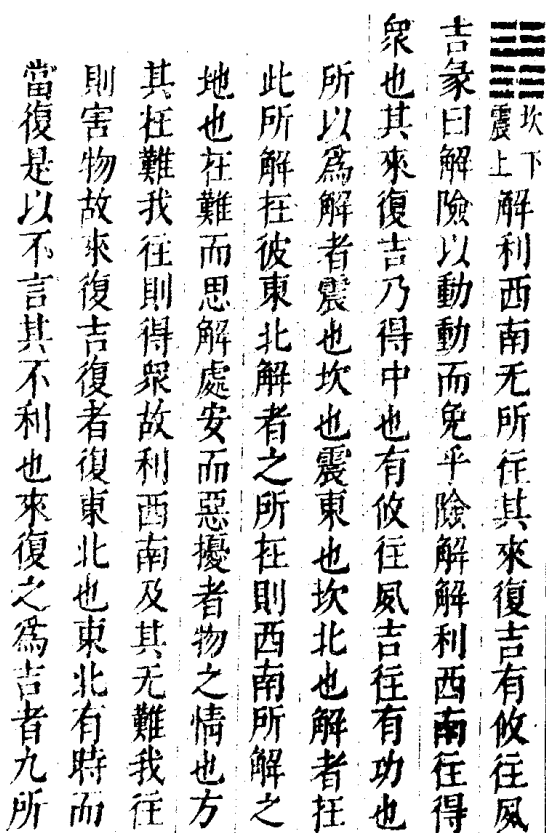 ䷧坎下震上解利西南无所往其來復吉有攸往夙
吉彖曰解險以動動而免乎險解解利西南往得
衆也其來復吉乃得中也有攸往夙吉往有功也
所以爲解者震也坎也震東也坎北也解者在
此所解在彼東北解者之所在則西南所解之
地也在難而思解處安而惡擾者物之情也方
其在難我往則得衆故利西南及其无難我往
則害物故來復吉復者復東北也東北有時而
當復是以不言其不利也來復之爲吉者九所